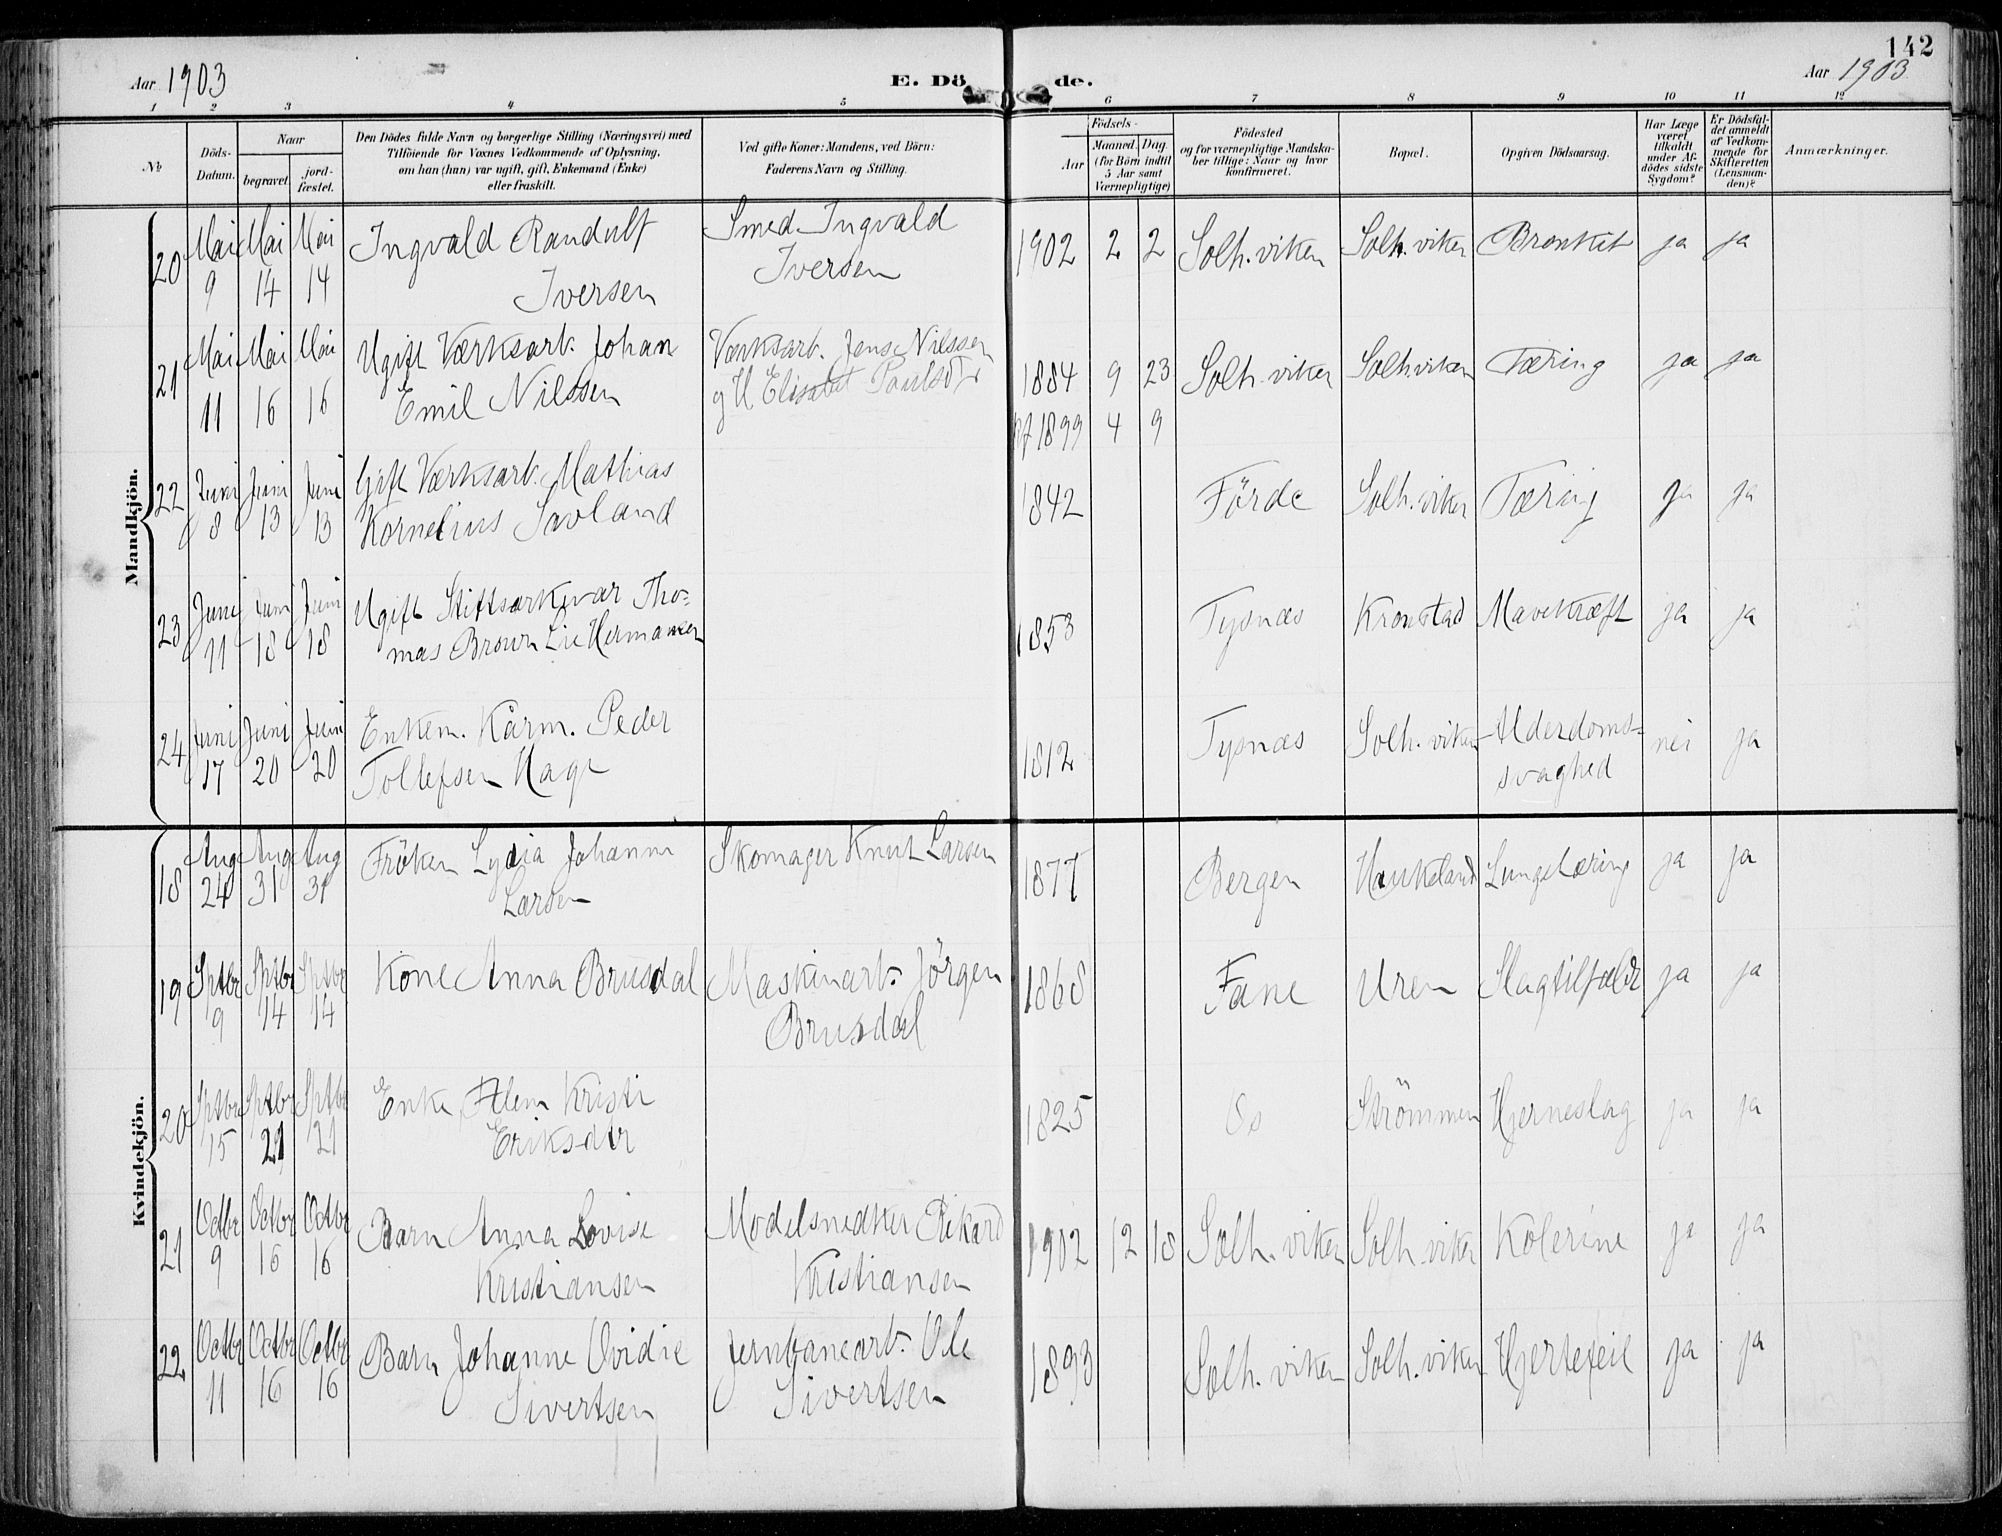 142
Aar 1903 E. Dö de. Aar 1903
1 2 3 4 5 6 7 8 9 10 11 12
No
Döds-Datum.
Naar
begravet.
jord-fæstet.
Den Dödes fulde Navn og borgerlige Stilling (Næringsvei) med
Tilföiende for Voxnes Vedkommende af Oplysning,
om han (hun) var ugift, gift, Enkemand (Enke)
eller fraskilt.
Ved gifte Koner: Mandens, ved Börn:
Faderens Navn og Stilling.
Födsels-
Aar
Maaned. Dag.
(for Börn indtil
5 Aar samt
Værnepligtige)
Födested
og for værnepligtige Mandska-
ber tillige: Naar og hvor
konfirmeret.
Bopæl.
Opgiven Dödsaarsag.
Har Læge
været
tilkaldt
under Af-
dödes sidste
Sygdom?
Er Dödsfal-
det anmeldt
af Vedkom-
mende for
Skifteretten
(Lensman-
den)?
Anmærkninger.
Mandkjön.
20 Mai 9 Mai 14 Mai 14 Ingvald Randulf Iversen Smed Ingvald Iversen 1902 2 2 Solh.viken Solh.viken Bronkit ja ja
21 Mai 11 Mai 16 Mai 16 Ugift Værksarb. Johan Emil Nilssen Værksarb. Jens Nilssen og H Elisabet Paulsdtr 1884 9 23 Solh.viken Solh.viken Tæring ja ja
kf 1899 4 9
22 Juni 8 Juni 13 Juni 13 Gift Værksarb. Mathias Kornelius Savland 1842 Förde Solh.viken Tæring ja ja
23 Juni 11 Juni 18 Juni 18 Ugift Stiftsarkivar Tho-
mas Brown Lie Hermansen 1853 Tysnæs Kronstad Mavekræft ja ja
24 Juni 17 Juni 20 Juni 20 Enkem. Kårm. Peder Tollefsen Hage 1812 Tysnæs Solh.viken Alderdoms-
svaghed nei ja
Kvindekjön.
18 Aug 24 Aug 31 Aug 31 Fröken Lydia Johanne Larsen Skomager Knut Larsen 1877 Bergen Haukeland Lungetæring ja ja
19 Sptbr 9 Sptbr 14 Sptbr 14 Kone Anna Brusdal Maskinarb. Jörgen Brusdal 1868 Fane Uren Slagtilfælde ja ja
20 Sptbr 15 Sptbr 21 Sptbr 21 Enke Fflem Kristi Eriksdtr 1825 Os Strömmen Hjerneslag ja ja
21 Octbr 9 Octbr 16 Octbr 16 Barn Anna Lovise Kristiansen Modelsnedker Rikard Kristiansen 1902 12 18 Solh.viken Solh.viken Kolerine ja ja
22 Octbr 11 Octbr 16 Octbr 16 Barn Johanne Ovidie Sivertsen Jernbanearb. Ole Sivertsen 1893 Solh.viken Solh.viken Hjertefeil ja ja